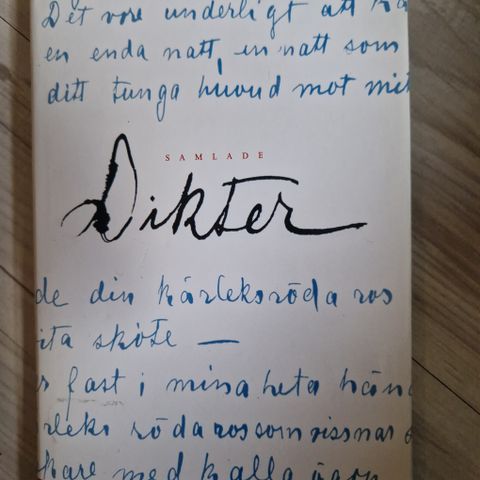 Det vore underligt att
en enda natt, en natt som
ditt tunga huvud mot
SAMLADE
Dikter
de din kärleksröda ros
ita sköte —
r fast i mina heta hän
rleks röda ros som vissnar
kare med kalla ögon